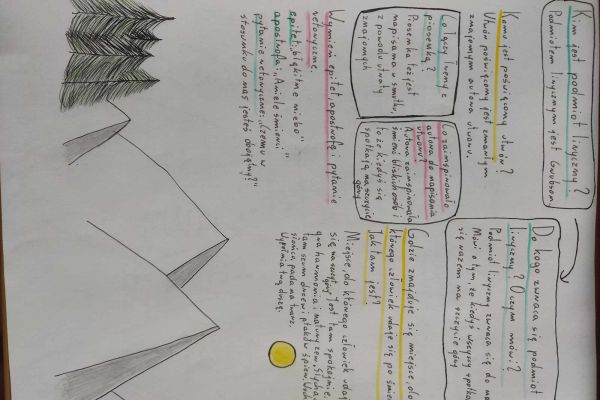 Kim jest podmiot liryczny?
Podmiotem lirycznym jest
Komu jest poświęcony utwór?
Utwór poświęcony jest zmarłym
znajomym autora utworu.
Co łączy treny z
piosenką?
Piosenka też jest
napisana w smutku,
z powodu utraty
znajomych
Co zainspirowało
autora do napisania
utworu?
Autora zainspirowała
śmierć bliskich osób i
to że kiedyś się
spotkają na szczycie
góry
Wymień epitet, apostrofę i pytanie
retoryczne.
epitet: błękitne niebo"
apostrofa: "Aniele śmierci
pytanie retoryczne: "Czemu w
stosunku do nas jesteś obojętny?"
Do kogo zwraca się podmiot
liryczny? O czym mówi?
Podmiot liryczny zwraca się do
Mówi o tym, że kiedyś wszyscy
się razem na szczycie góry
Gdzie znajduje się miejsce, do
którego człowiek udaje się po
Jak tam jest?
Miejsce, do którego człowiek
się na szczyt góry. Jest tam spokojnie,
harmonia i
tam szum drzew i ptaków śpiew.
słońca pada na twarz.
Wypełnia twą duszę.